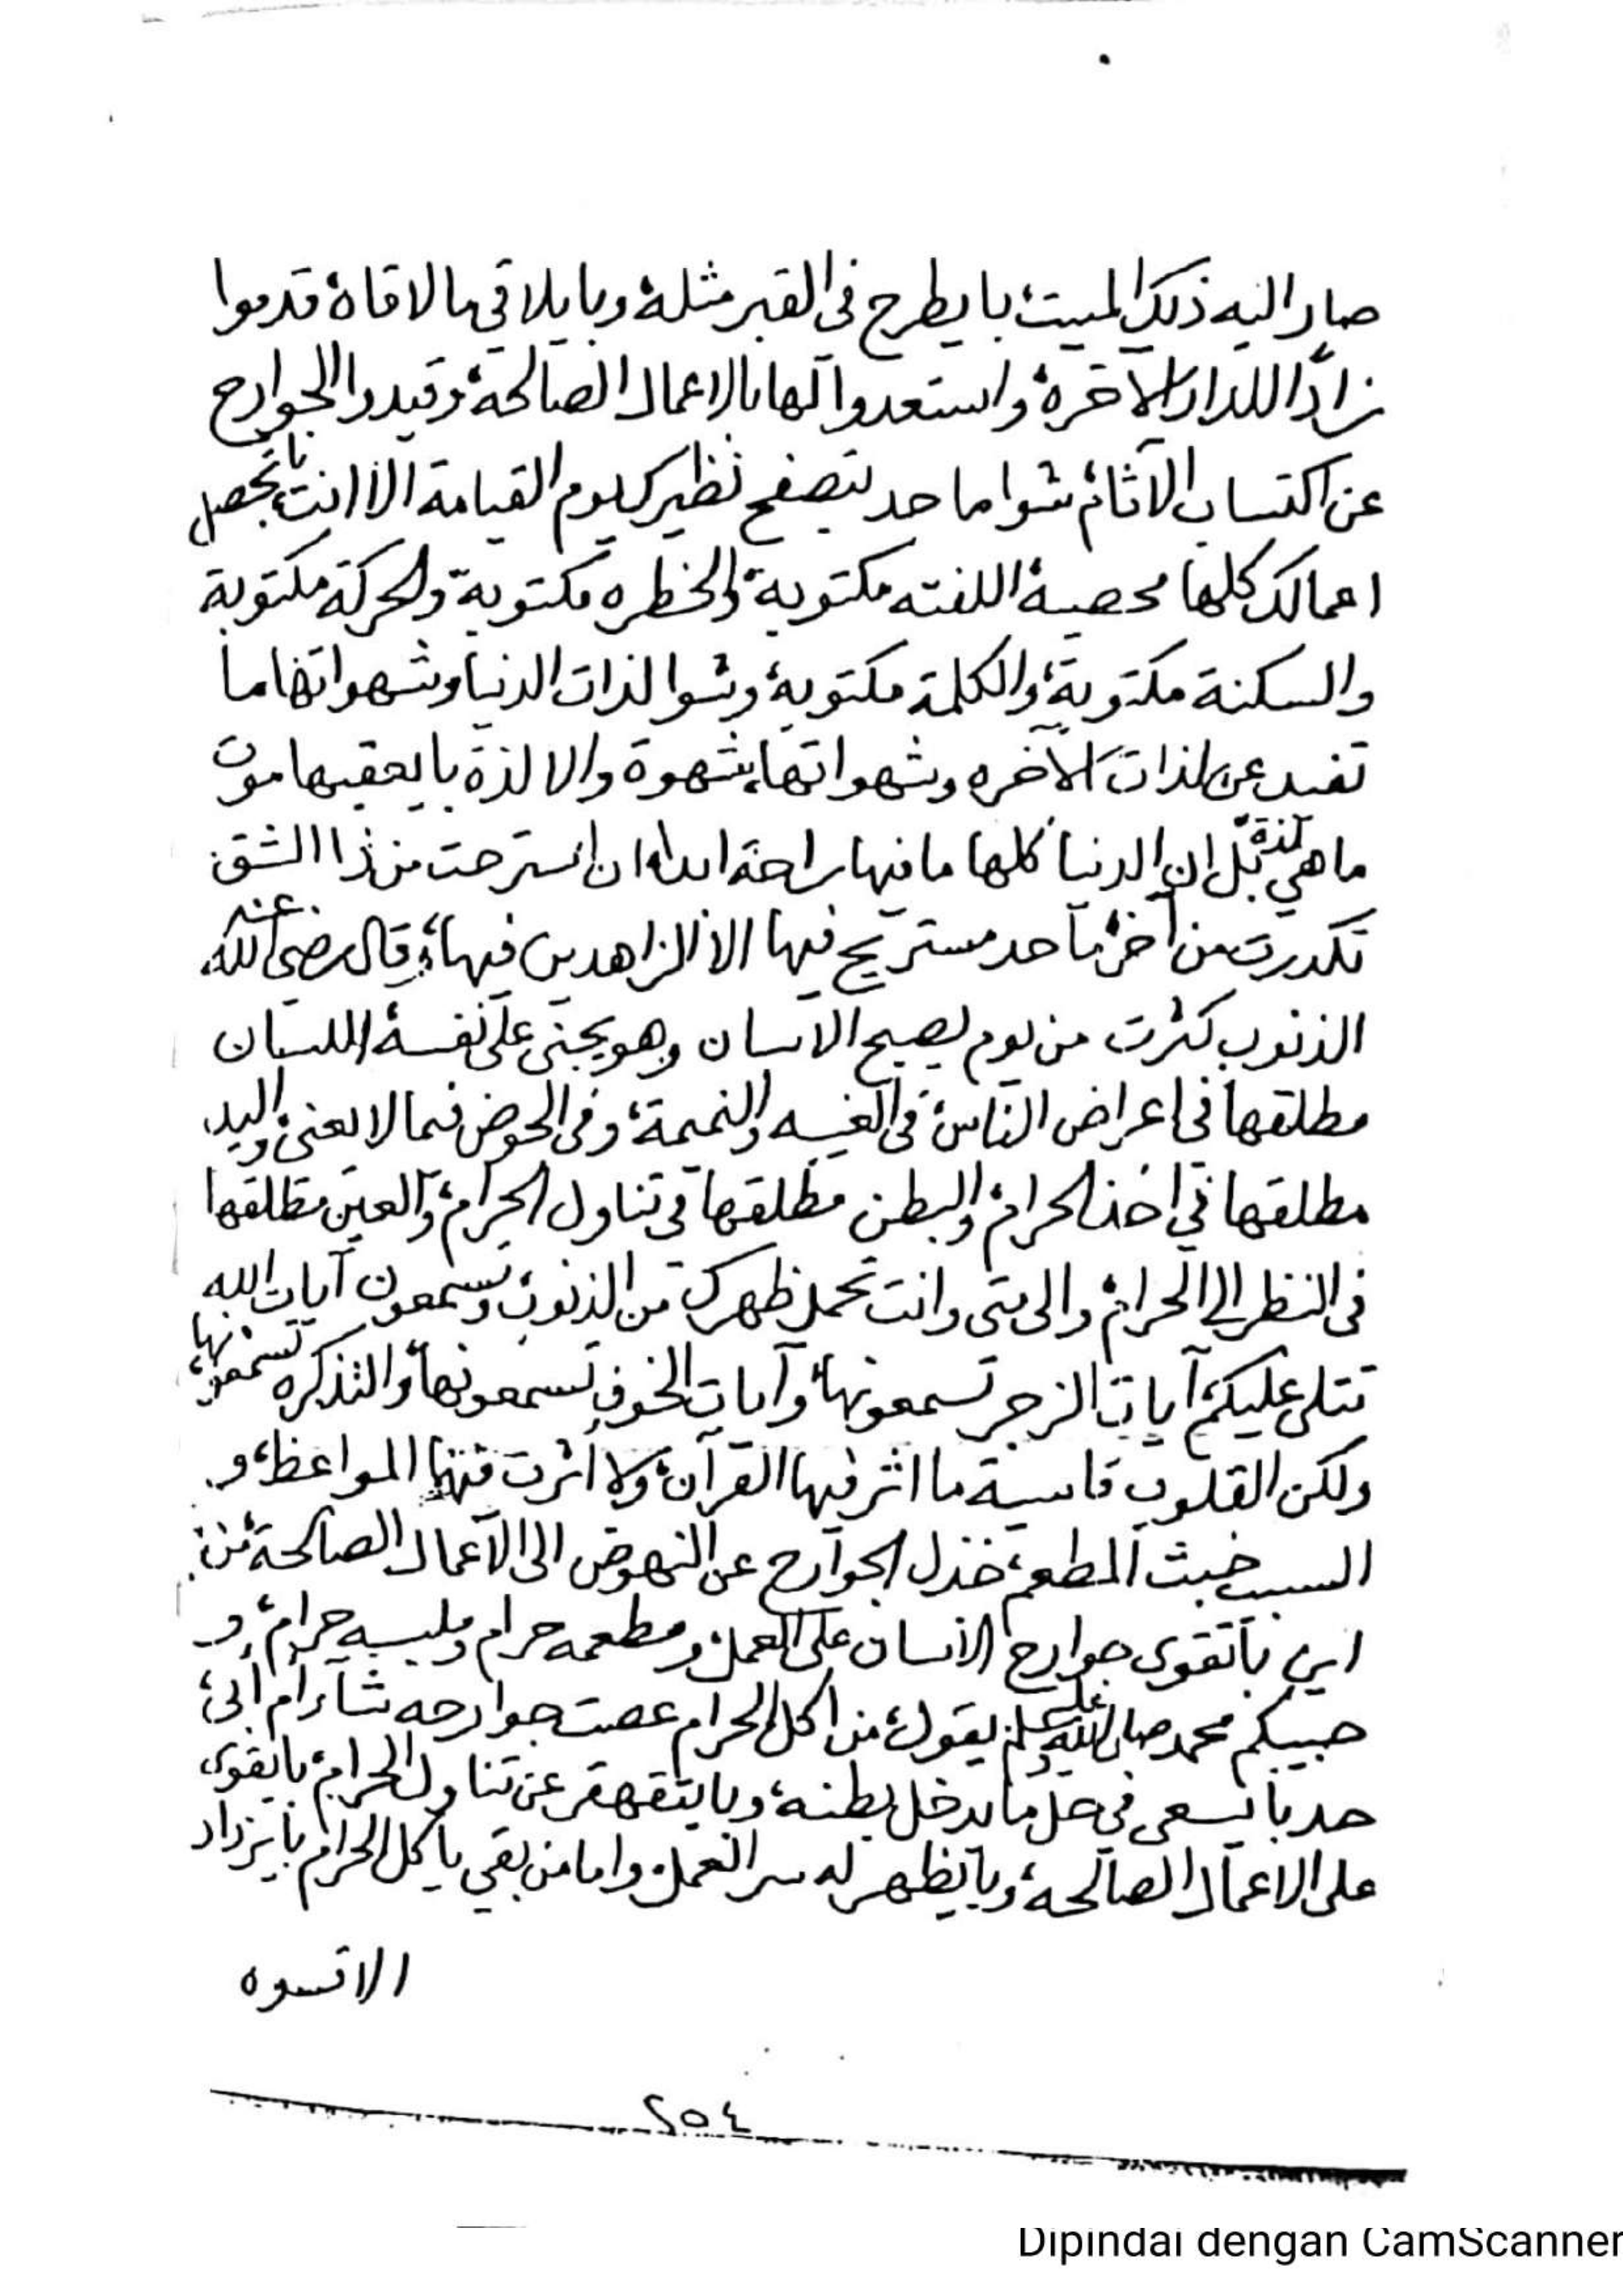 صار اليه ذلك الميت، با يطرح فى القبر مثله، وبايلاقي ما لاقاه، قدموا
زادًا للدار الآخرة، واستعدوا لها بالاعمال الصالحة، وقيدوا الجوارح
عن اكتساب الآثام، شوا ماحد لتصفح نظيرك يوم القيامة الا انت، با تحصل
اعمالك كلها محصية، اللفته مكتوبة، والخطره مكتوبة، والحركة مكتوبة
والسكنة مكتوبة، والكلمة مكتوبة، وشوا لذات الدنيا وشهواتها ما
تفيد عن لذات الآخره وشهواتها، شهوة والا لذة با يعقبها موت
ما هي لذة، بل ان الدنيا كلها ما فيها راحة ابدا، ان استرحت من ذا الشق
تكدرت من آخر، ما حد مستريح فيها الا الزاهدين فيها، وقال رضي الله عنه
الذنوب كثرت من يوم يصبح الانسان وهو يجني على نفسه، اللسان
مطلقها فى اعراض الناس، فى الغيبه والنميمة، وفى الخوض فيما لا يعنى، واليد
مطلقها في اخذ الحرام، والبطن مطلقها فى تناول الحرام، والعين مطلقها
فى النظر الى الحرام، والى متى وانت تحمل ظهرك من الذنوب، وتسمعون آيات الله
تتلى عليكم، آيات الزجر تسمعونها، وآيات الخوف تسمعونها، والتذكره تسمعونها،
ولكن القلوب قاسية ما اثر فيها القرآن، ولا أثرت فيها المواعظ، و
السبب خبث المطعم، خذل الجوارح عن النهوض الى الاعمال الصالحة، من
اين با تقوى جوارح الانسان على العمل، ومطعمه حرام وملبسه حرام، و
حبيبكم محمد صلى الله عليه وسلم يقول، من اكل الحرام عصت جوارحه شاء أم أبى،
حد با يسعى في حل ما يدخل بطنه، وبا يتقهقر عن تناول الحرام، با يقوى
على الاعمال الصالحة، وبا يظهر له سر العمل، واما من بقي ياكل الحرام با يزداد
الا قسوه
٢٥٤
Dipindai dengan CamScanner